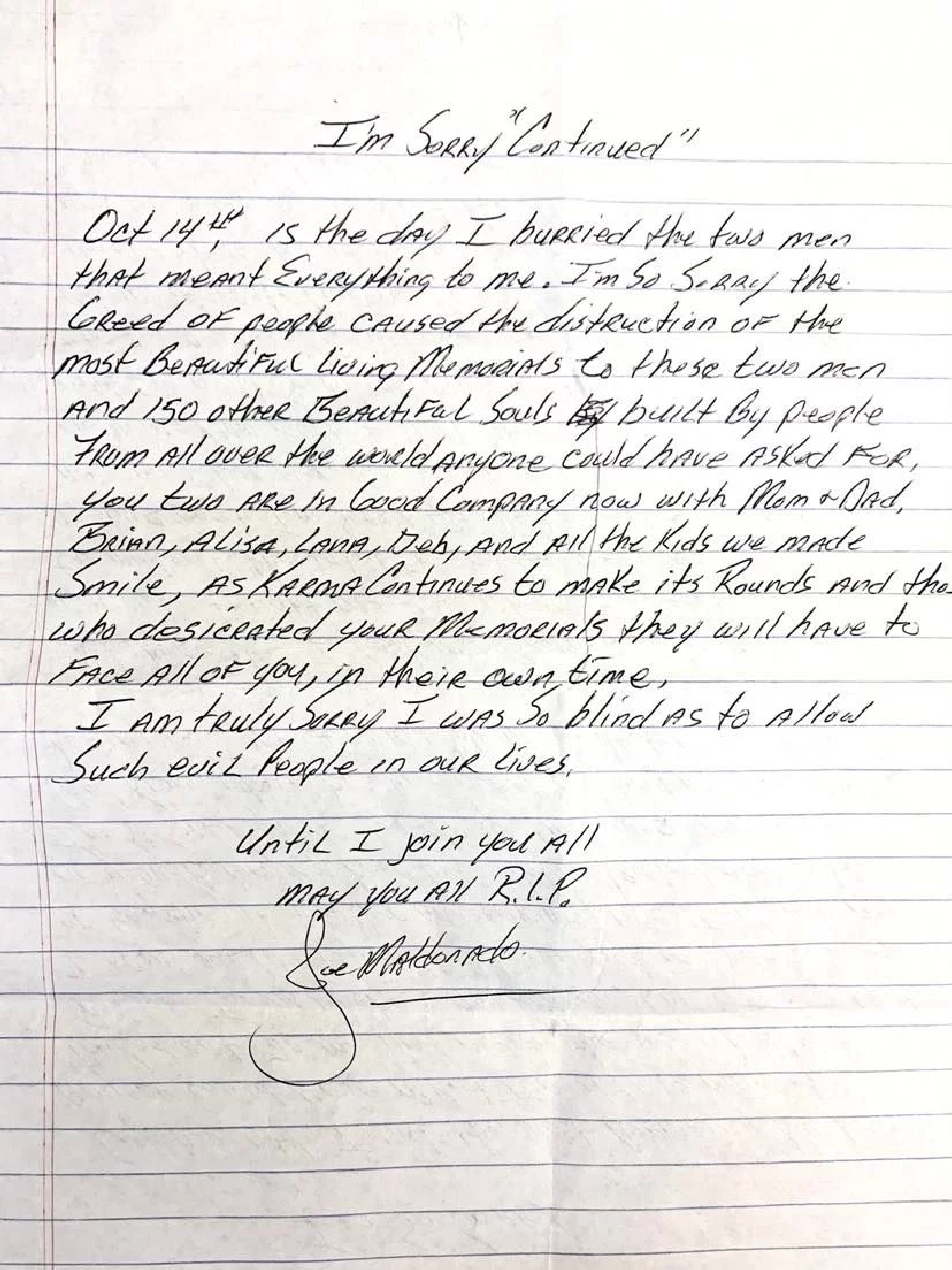 I'm Sorry "Continued"
Oct 14th, is the day I burried the two men
that meant Everything to me. I'm So Sorry the
Greed of people caused the distruction of the
most Beautiful living Memorials to these two men
And 150 other Beautiful Souls built By people
From All over the world anyone could have Asked For,
you two Are in Good Company now with Mom & Dad,
Brian, Alisa, Lana, Deb, and All the Kids we made
Smile, As Karma Continues to make its Rounds and
who desicrated your Memorials they will have to
Face All of you, in their own time,
I Am truly Sorry I was So blind As to Allow
Such evil People in our lives.
Until I join you All
may you All R.I.P.
Joe Maldonado